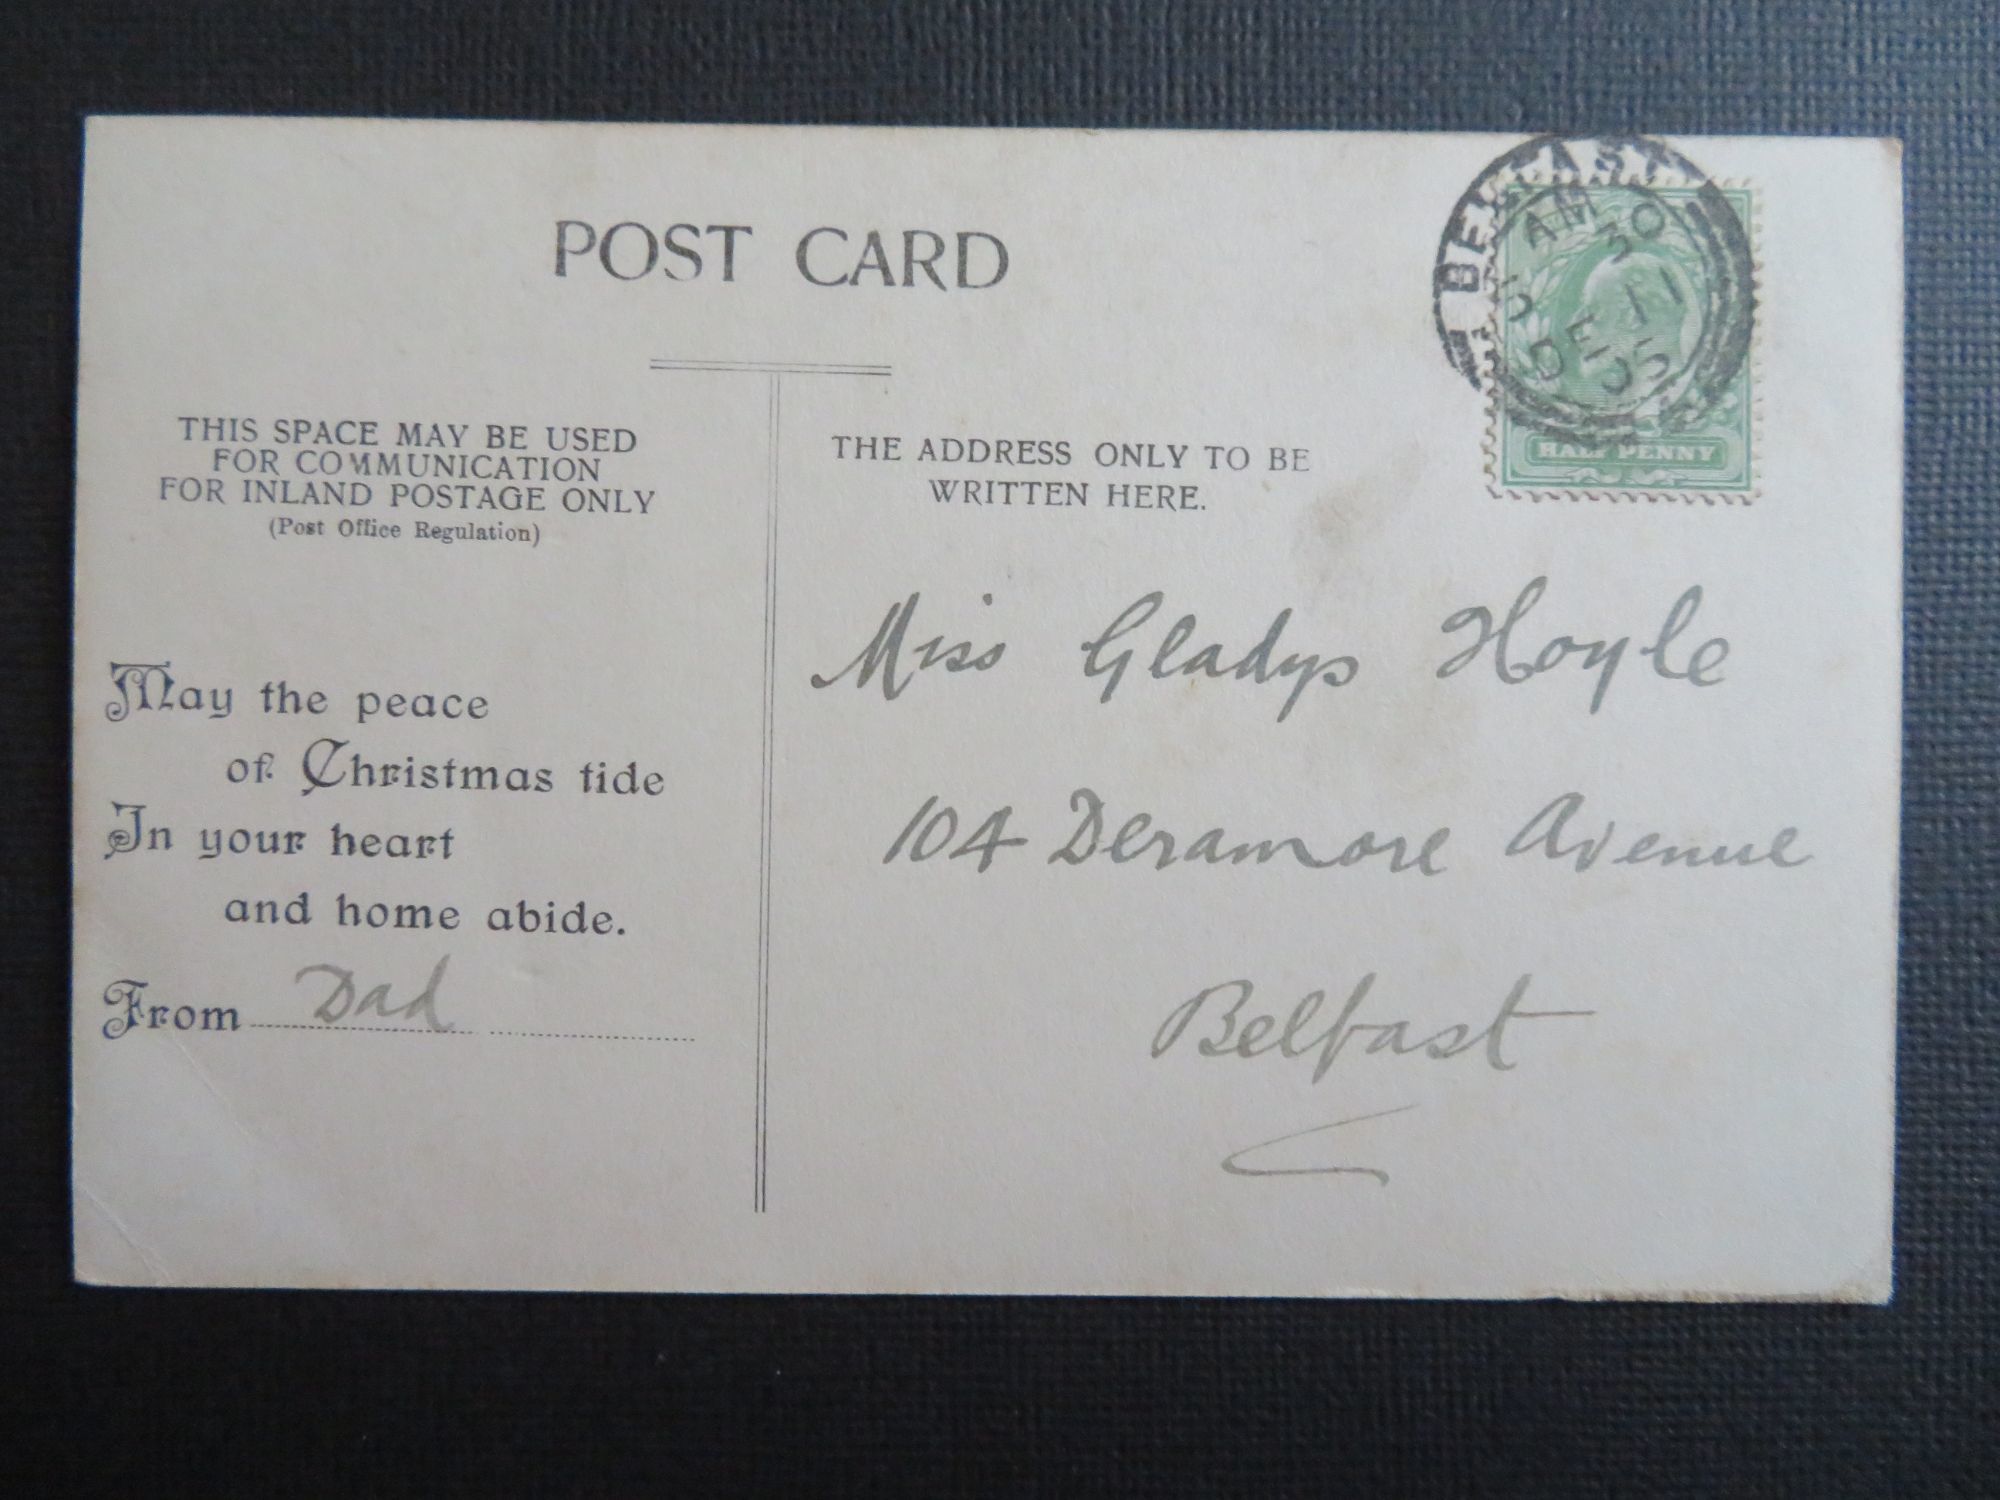 POST CARD
THIS SPACE MAY BE USED
FOR COMMUNICATION
FOR INLAND POSTAGE ONLY
(Post Office Regulation)
May the peace
of Christmas tide
In your heart
and home abide.
From Dad
BELFAST
HALF PENNY
THE ADDRESS ONLY TO BE
WRITTEN HERE.
Miss Gladys Hoyle
104 Deramore Avenue
Belfast